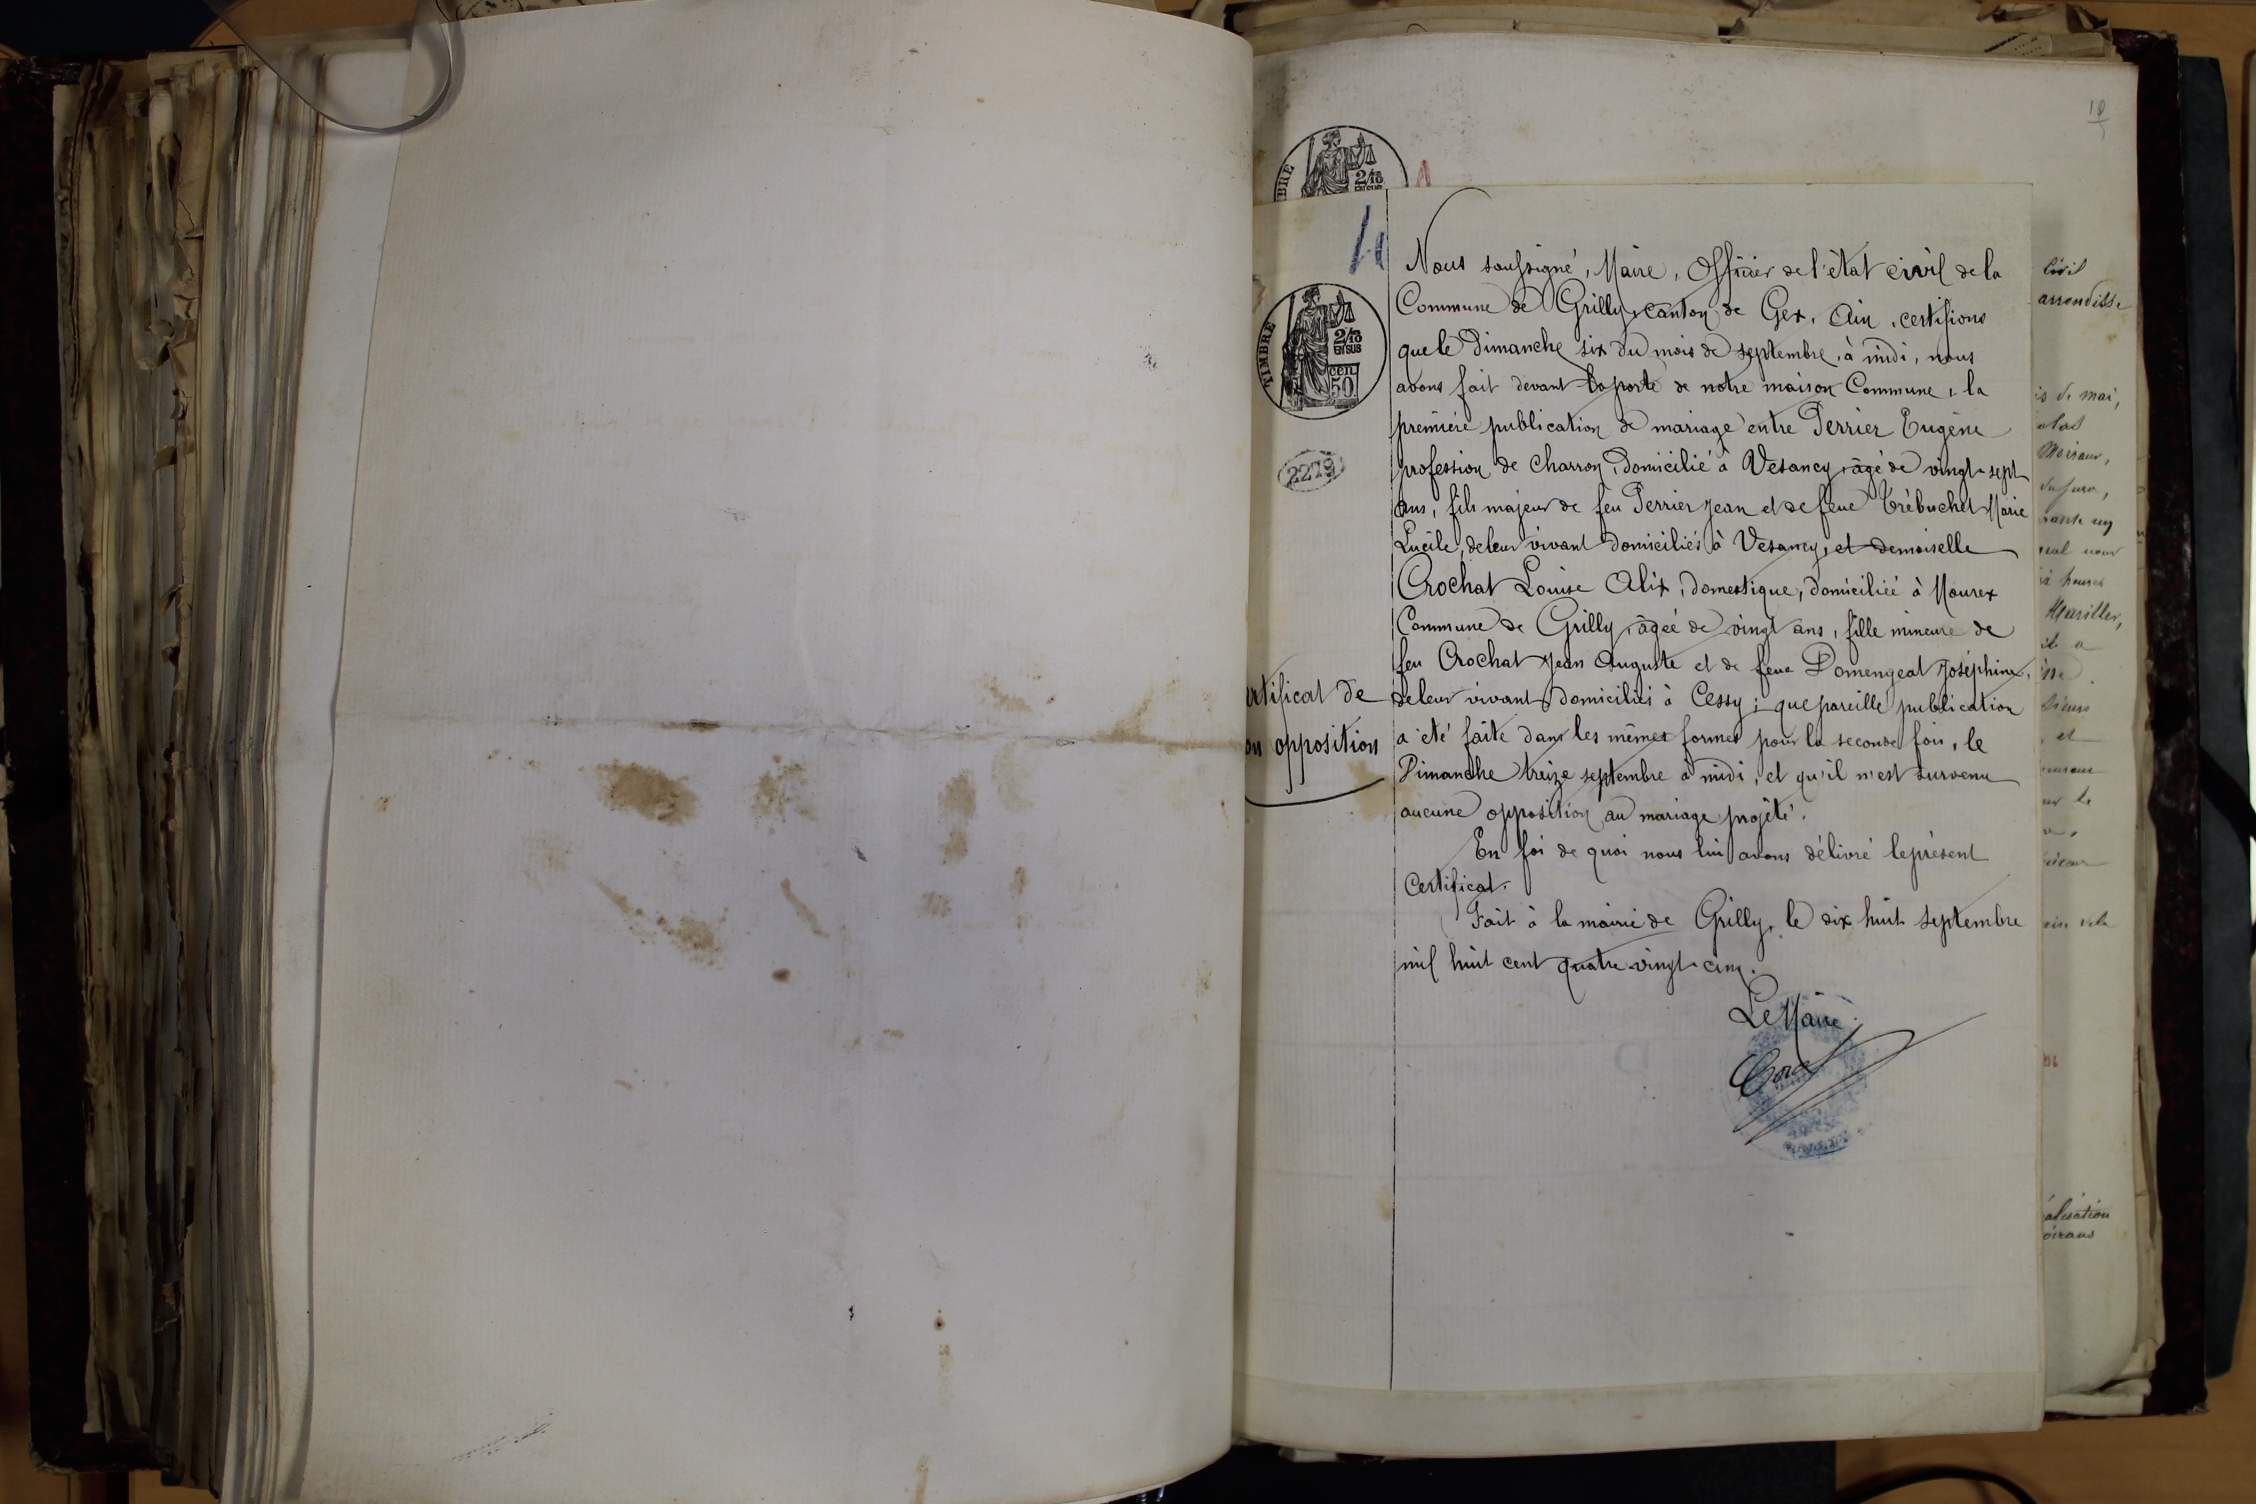 10
TIMBRE
2/10
EN SUS
Nous soussigné, Maire, Officier de l'état civil de la
Commune de Grilly, canton de Gex, Ain, certifions
que le Dimanche six du mois de septembre, à midi, nous
avons fait devant la porte de notre maison Commune, la
première publication de mariage entre Perrier Eugène
profession de charron, domicilié à Vesancy, âgé de vingt-sept
ans, fils majeur de feu Perrier Jean et de feue Trébuchet Marie
Lucile, de leur vivant domiciliés à Vesancy, et demoiselle
Crochat Louise Alix, domestique, domiciliée à Mourex
Commune de Grilly, âgée de vingt ans, fille mineure de
feu Crochat Jean Auguste et de feue Domengeat Joséphine,
de leur vivant domiciliés à Cessy; que pareille publication
a été faite dans les mêmes formes pour la seconde fois, le
Dimanche treize septembre à midi, et qu'il n'est survenu
aucune opposition au mariage projeté.
En foi de quoi nous lui avons délivré le présent
Certificat.
Fait à la mairie de Grilly, le dix huit septembre
mil huit cent quatre-vingt-cinq.
Le Maire
TIMBRE
2/10
EN SUS
CEN
50
2279
ertificat de
on opposition
civil
arrondisse
is de mai,
Moirans,
du Jura,
à heures
il a
et
alisation
oirans